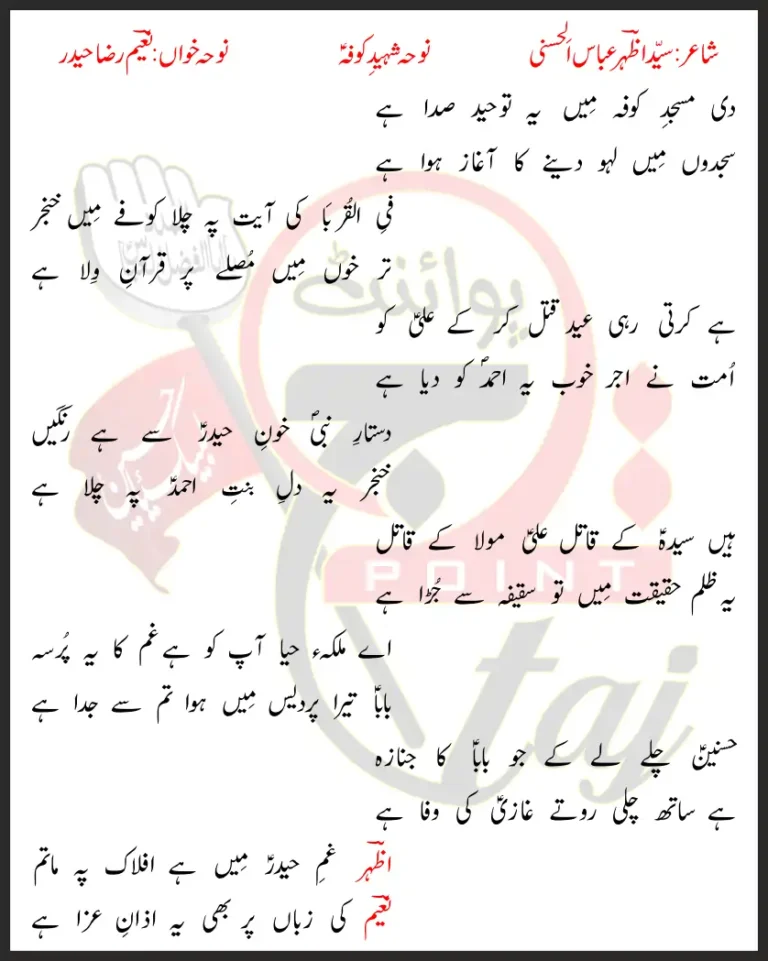 شاعر: سیّد اظہر عباس الحسنی نوحہ شہیدِ کوفہؑ نوحہ خواں: نعیم رضا حیدر
دی مسجدِ کوفہ میں یہ توحید صدا ہے
سجدوں میں لہو دینے کا آغاز ہوا ہے
فی القُربَا کی آیت پہ چلا کوفے میں خنجر
تر خوں میں مُصلے پر قرآنِ وِلا ہے
ہے کرتی رہی عید قتل کر کے علیؑ کو
اُمت نے اجر خوب یہ احمدؐ کو دیا ہے
دستارِ نبیؐ خونِ حیدرؑ سے ہے رنگیں
خنجر یہ دلِ بنتِ احمدؐ پہ چلا ہے
ہیں سیدہؑ کے قاتل علیؑ مولا کے قاتل
یہ ظلم حقیقت میں تو سقیفہ سے جُڑا ہے
اے ملکہء حیا آپ کو ہے غم کا یہ پُرسہ
باباؑ تیرا پردیس میں ہوا تم سے جدا ہے
حسنینؑ چلے لے کے جو باباؑ کا جنازہ
ہے ساتھ چلی روتے غازیؑ کی وفا ہے
اظہر غمِ حیدرؑ میں ہے افلاک پہ ماتم
نعیم کی زباں پر بھی یہ اذانِ عزا ہے
پوائنٹ
تاج
لبیک یا حسین
POINT
taj